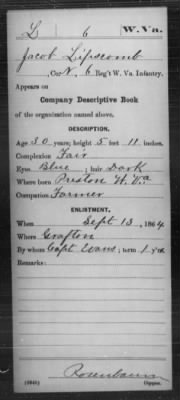 L 6 W. Va.
Jacob Lipscomb
, Co. N, 6 Reg't W. Va. Infantry.
Appears on
Company Descriptive Book
of the organization named above.
DESCRIPTION.
Age 30 years; height 5 feet 11 inches.
Complexion Fair
Eyes Blue; hair Dark
Where born Preston W. Va
Occupation Farmer
ENLISTMENT.
When Sept 13, 1864
Where Grafton
By whom Capt Evans; term 1 yrs
Remarks:
Rosenbaum
(3846) Copyist.